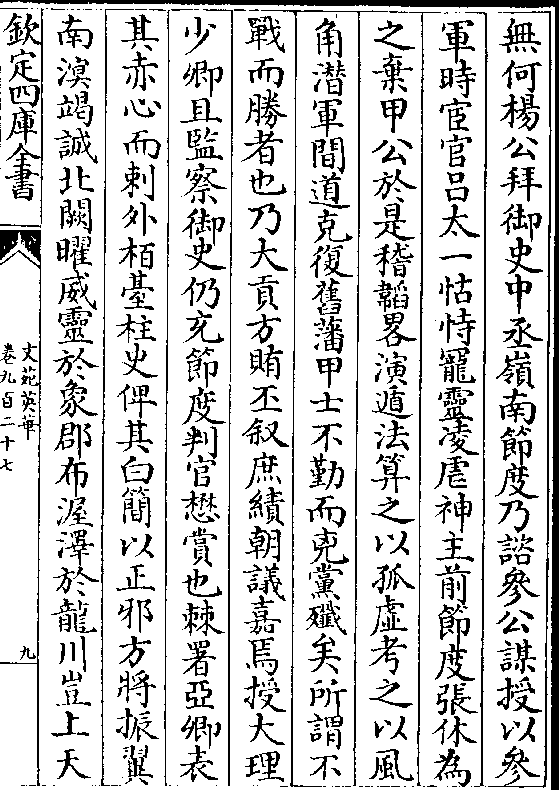 無何楊公拜御史中丞嶺南節度乃諮參公謀授以參
軍時宦官吕太一怙恃寵靈凌虐神主前節度張休為
之棄甲公於是稽韜畧演遁法算之以孤虛考之以風
角潜軍間道克復舊藩甲士不勤而兇黨殲矣所謂不
戰而勝者也乃大貢方賄丕叙庶績朝議嘉焉授大理
少卿且監察御史仍充節度判官懋賞也棘署亞卿表
其赤心而刺外栢臺柱史俾其白簡以正邪方將振翼
南溟竭誠北闕曜威靈於象郡布渥澤於龍川豈上天
欽定四庫全書
文苑英華
卷九百二十七
九